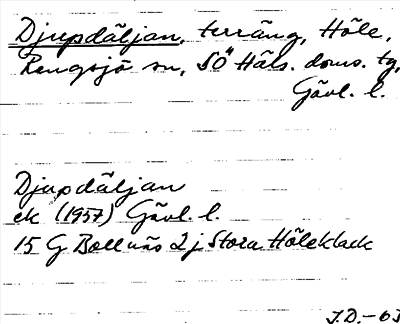 Djupdäljan, terräng, Höle,
Rengsjö sn, SÖ Häls. doms. tg,
Gävl. l.
Djupdäljan
ek (1957) Gävl. l.
15 G Bollnäs 2 j Stora Höleklack
J.D.-63